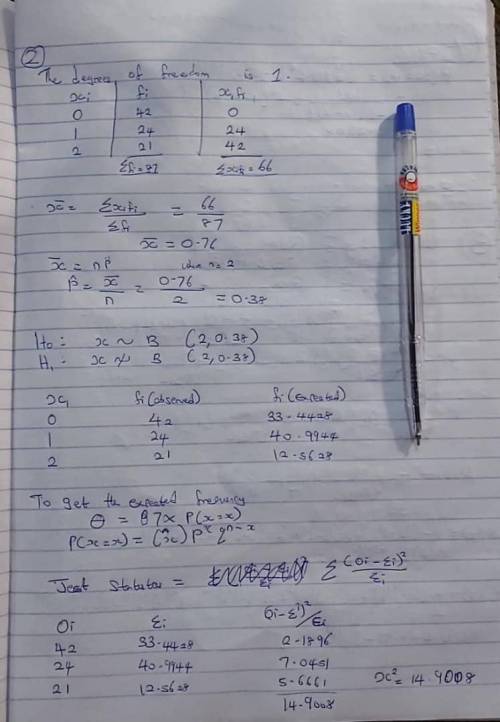 2
The degrees of freedom is 1.
xi fi xifi
0 42 0
1 24 24
2 21 42
Σfi = 87 Σxifi = 66
x̄ = Σxifi / Σfi = 66 / 87
x̄ = 0.76
x̄ = np̂ when n = 2
p̂ = x̄ / n = 0.76 / 2 = 0.38
H0: x ~ B (2, 0.38)
H1: x ≁ B (2, 0.38)
xi fi (observed) fi (expected)
0 42 33.4428
1 24 40.9944
2 21 12.5628
To get the expected frequency
θ = 87 x P(x=x)
P(x=x) = (n x) p^x q^n-x
Test Statistic = Σ (Oi - Ei)² / Ei
Oi Ei (Oi - Ei)² / Ei
42 33.4428 2.1896
24 40.9944 7.0451
21 12.5628 5.6661 x² = 14.9008
14.9008